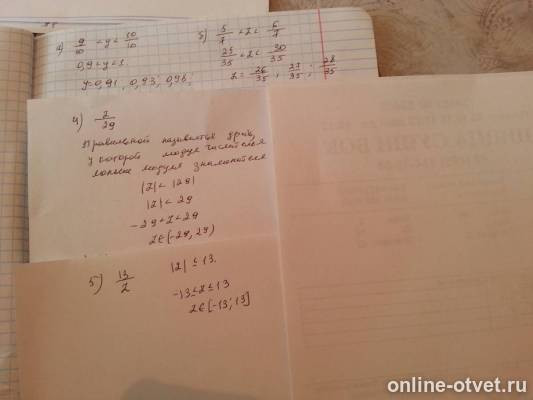 а) 9/10 < y < 10/10
0,9 < y < 1
y = 0,91, 0,93, 0,98,
б) 5/7 < z < 6/7
25/35 < z < 30/35
z = 26/35 ; 27/35 ; 28/35
4) z/29
Правильной называется дробь,
у которой модуль числителя
меньше модуля знаменателя
|z| < |29|
|z| < 29
-29 < z < 29
z ∈ (-29, 29)
5) 13/z |z| ≤ 13.
-13 ≤ z ≤ 13
z ∈ [-13; 13]
online-otvet.ru